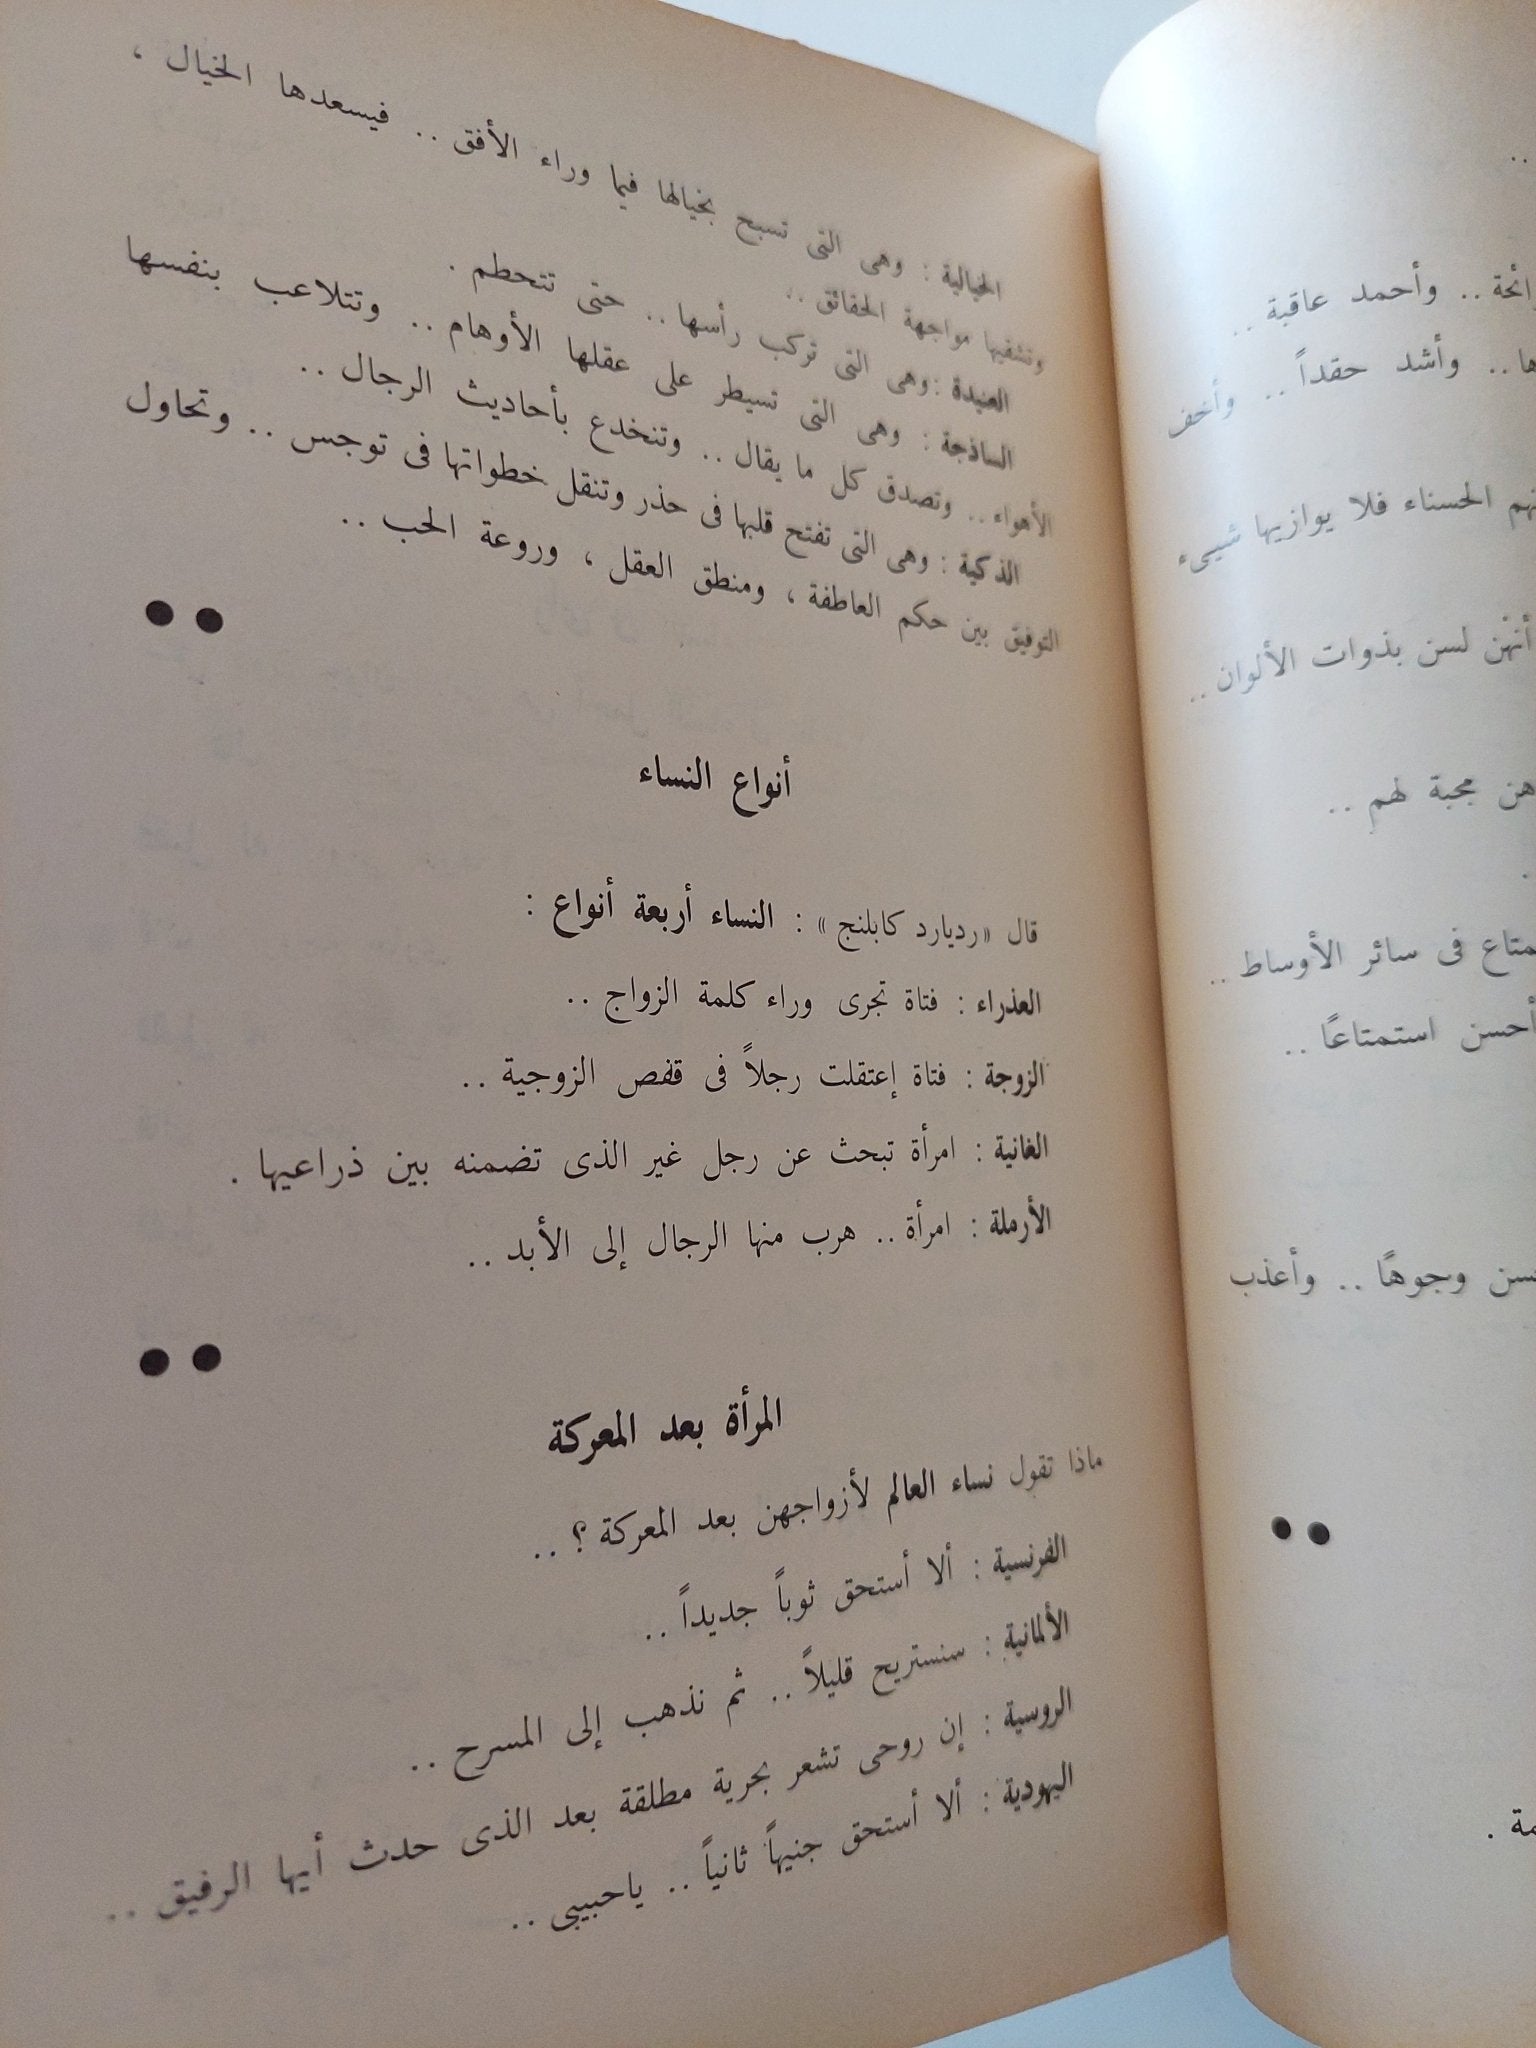 الخيالية : وهى التى تسبح بخيالها فيما وراء الأفق .. فيسعدها الخيال ،
وتشقيها مواجهة الحقائق ..
العنيدة : وهى التى تركب رأسها .. حتى تتحطم .
الساذجة : وهى التى تسيطر على عقلها الأوهام .. وتتلاعب بنفسها
الأهواء .. وتصدق كل ما يقال .. وتنخدع بأحاديث الرجال ..
الذكية : وهى التى تفتح قلبها فى حذر وتنقل خطواتها فى توجس .. وتحاول
التوفيق بين حكم العاطفة ، ومنطق العقل ، وروعة الحب ..
أنواع النساء
قال «رديارد كابلنج» : النساء أربعة أنواع :
العذراء : فتاة تجرى وراء كلمة الزواج ..
الزوجة : فتاة إعتقلت رجلاً فى قفص الزوجية ..
الغانية : امرأة تبحث عن رجل غير الذى تضمنه بين ذراعيها .
الأرملة : امرأة .. هرب منها الرجال إلى الأبد ..
المرأة بعد المعركة
ماذا تقول نساء العالم لأزواجهن بعد المعركة ؟ ..
الفرنسية : ألا أستحق ثوباً جديداً ..
الألمانية : سنستريح قليلاً .. ثم نذهب إلى المسرح ..
الروسية : إن روحى تشعر بحرية مطلقة بعد الذى حدث أيها الرفيق ..
اليهودية : ألا أستحق جنيهاً ثانياً .. ياحبيبى ..
.. وأحمد عاقبة ..
.. وأشد حقداً .. وأخف
الحسناء فلا يوازيها شيىء
أنهن لسن بذوات الألوان ..
هن محبة لهم ..
فى سائر الأوساط ..
أحسن استمتاعًا ..
وجوهًا .. وأعذب